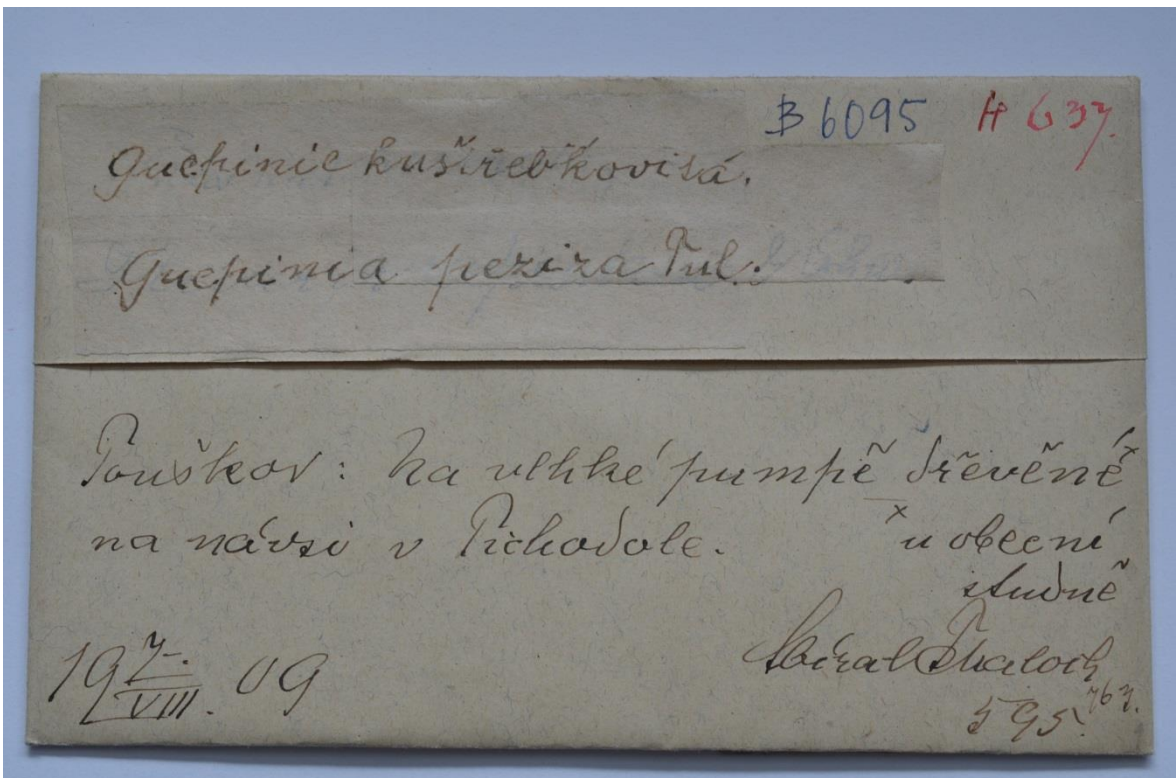 B 6095 H 637.
Guepinie kustřebkovitá.
Guepinia peziza Tul.
Touškov: Na vlhké pumpě dřevěné x
na návsi v Tichodole. x u obecní
studně
19 7. VIII. 09
sbíral
595. 767.